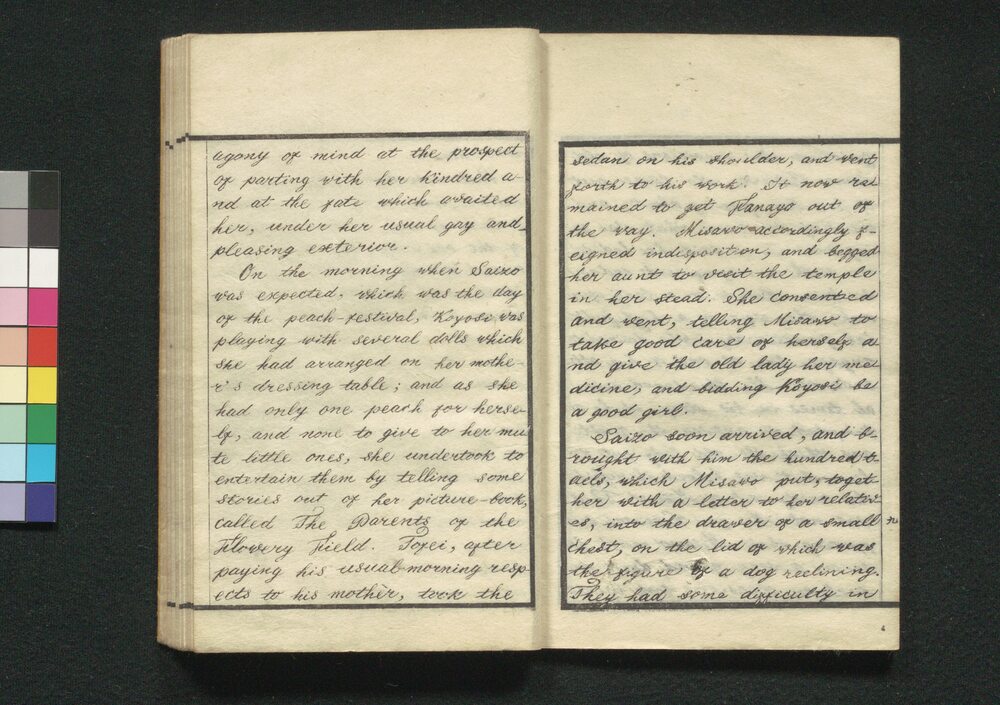 agony of mind at the prospect
of parting with her kindred a-
nd at the fate which awaited
her, under her usual gay and
pleasing exterior.
On the morning when Saizo
was expected, which was the day
of the peach-festival, Koyosi was
playing with several dolls which
she had arranged on her mothe-
r's dressing table; and as she
had only one peach for herse-
lf, and none to give to her mu
te little ones, she undertook to
entertain them by telling some
stories out of her picture-book,
called The Parents of the
Flowery Field. Tofei, after
paying his usual morning resp-
ects to his mother, took the
sedan on his shoulder, and went
forth to his work. It now re
mained to get Fanayo out of
the way. Misavo accordingly f-
eigned indisposition, and begged
her aunt to visit the temple
in her stead. She consented
and went, telling Misavo to
take good care of herself a
nd give the old lady her me
dicine, and bidding Koyosi be
a good girl.
Saizo soon arrived, and b-
rought with him the hundred t-
aels, which Misavo put, toget
her with a letter to her relativ-
es, into the drawer of a small
chest, on the lid of which was
the figure of a dog reclining.
They had some difficulty in
4